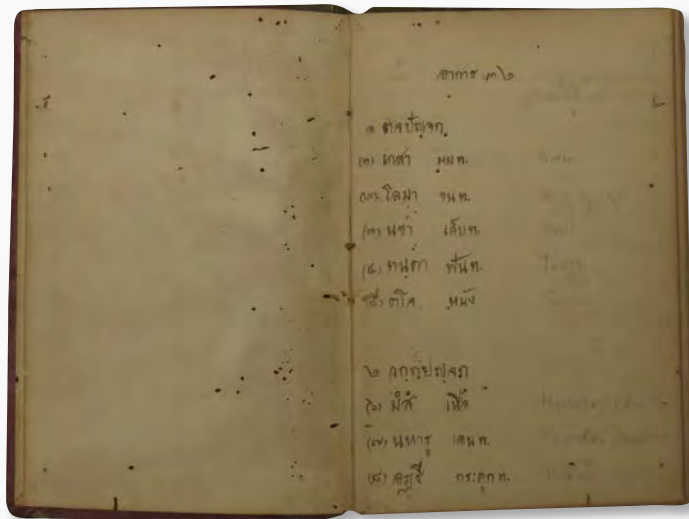 อาการ ๓๒
๑ ตจปัญจก
(๑) เกสา ผมท.
(๒) โลมา ขนท.
(๓) นขา เล็บท.
(๔) ทนฺตา ฟันท.
(๕) ตโจ หนัง
๒ วกฺกปญฺจก
(๖) มํสํ เนื้อ
(๗) นหารู เอนท.
(๘) อฏฺฐี กระดูกท.